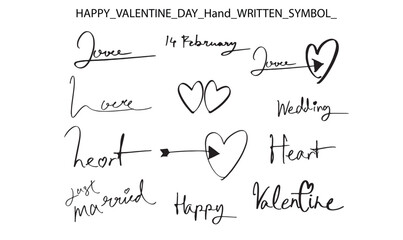 HAPPY_VALENTINE_DAY_Hand_WRITTEN_SYMBOL_
14 February
Wedding
heart
Heart
Just
married
Happy
Valentine